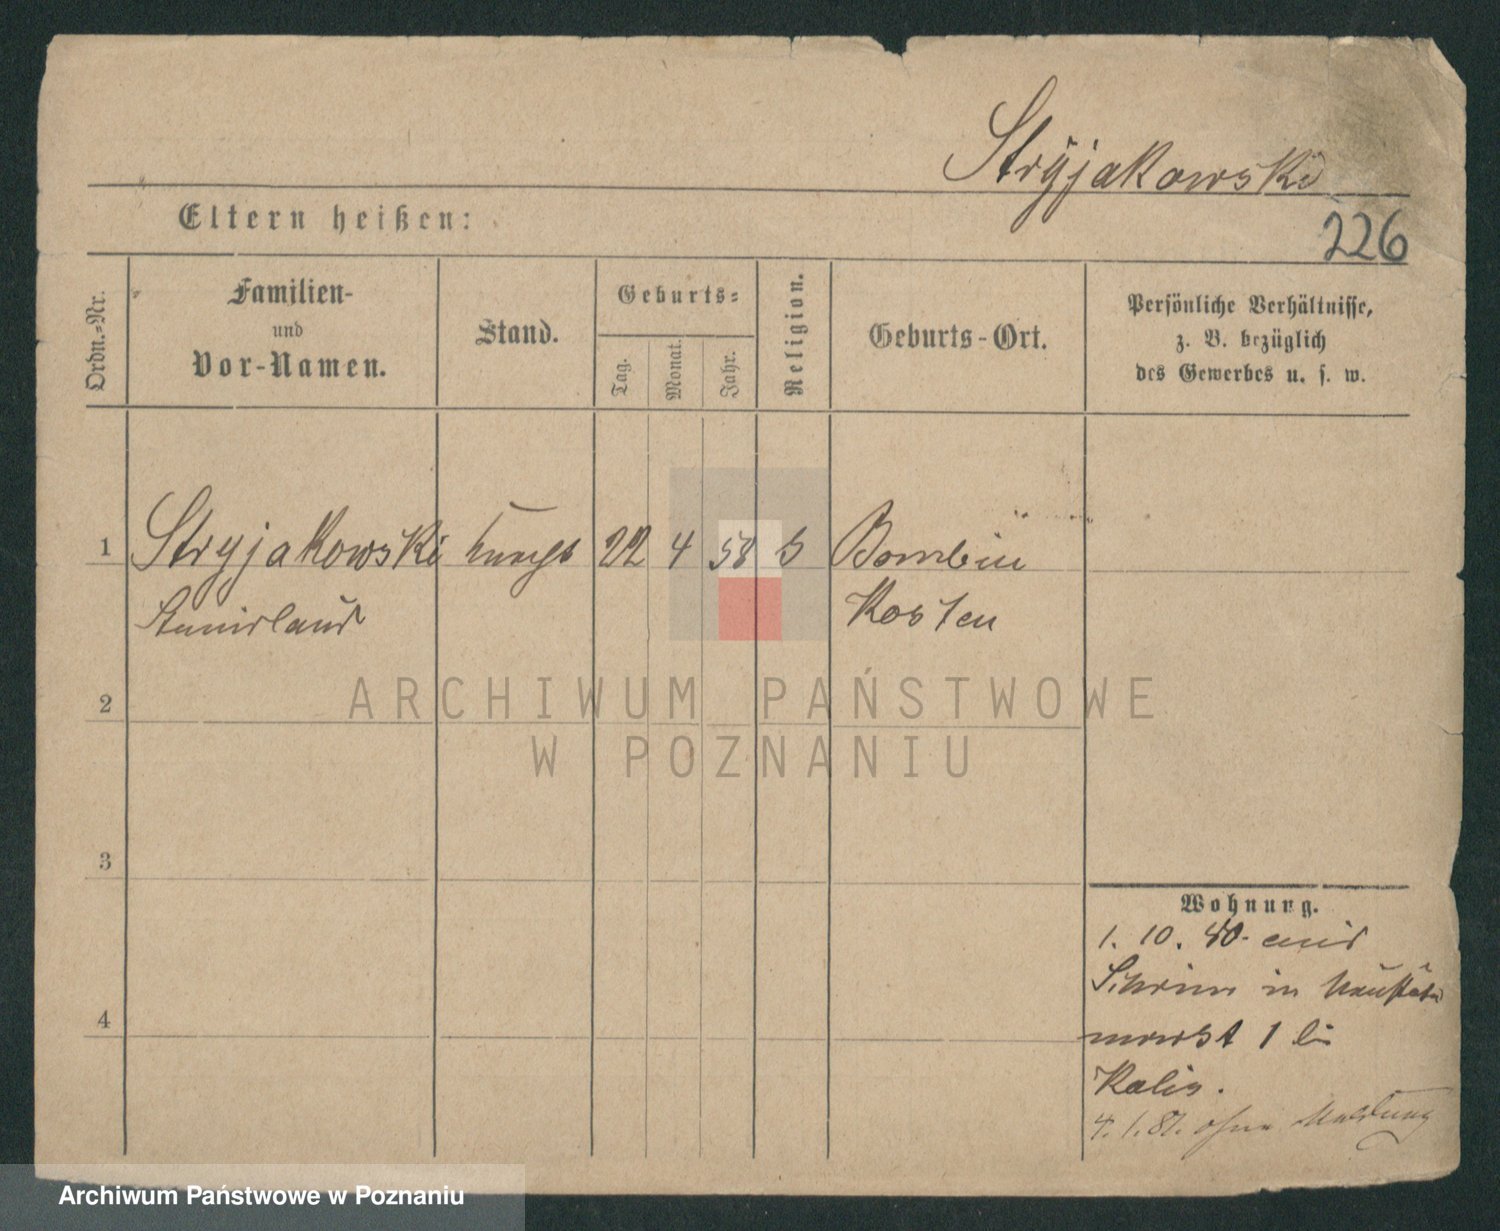 Stryjakowski
Eltern heißen:
226
Ordn.-Nr.
Familien-
und
Vor-Namen.
Stand.
Geburts-
Tag.
Monat.
Jahr.
Religion.
Geburts-Ort.
Persönliche Verhältnisse,
z. B. bezüglich
des Gewerbes u. s. w.
1 Stryjakowski 22 4 58
Kosten
2
ARCHIWUM PAŃSTWOWE
W POZNANIU
3
Wohnung.
1. 10. 80. aus
Schrim in
4
markt 1 bei
Kalis.
4. 1. 81. ohne Meldung
Archiwum Państwowe w Poznaniu